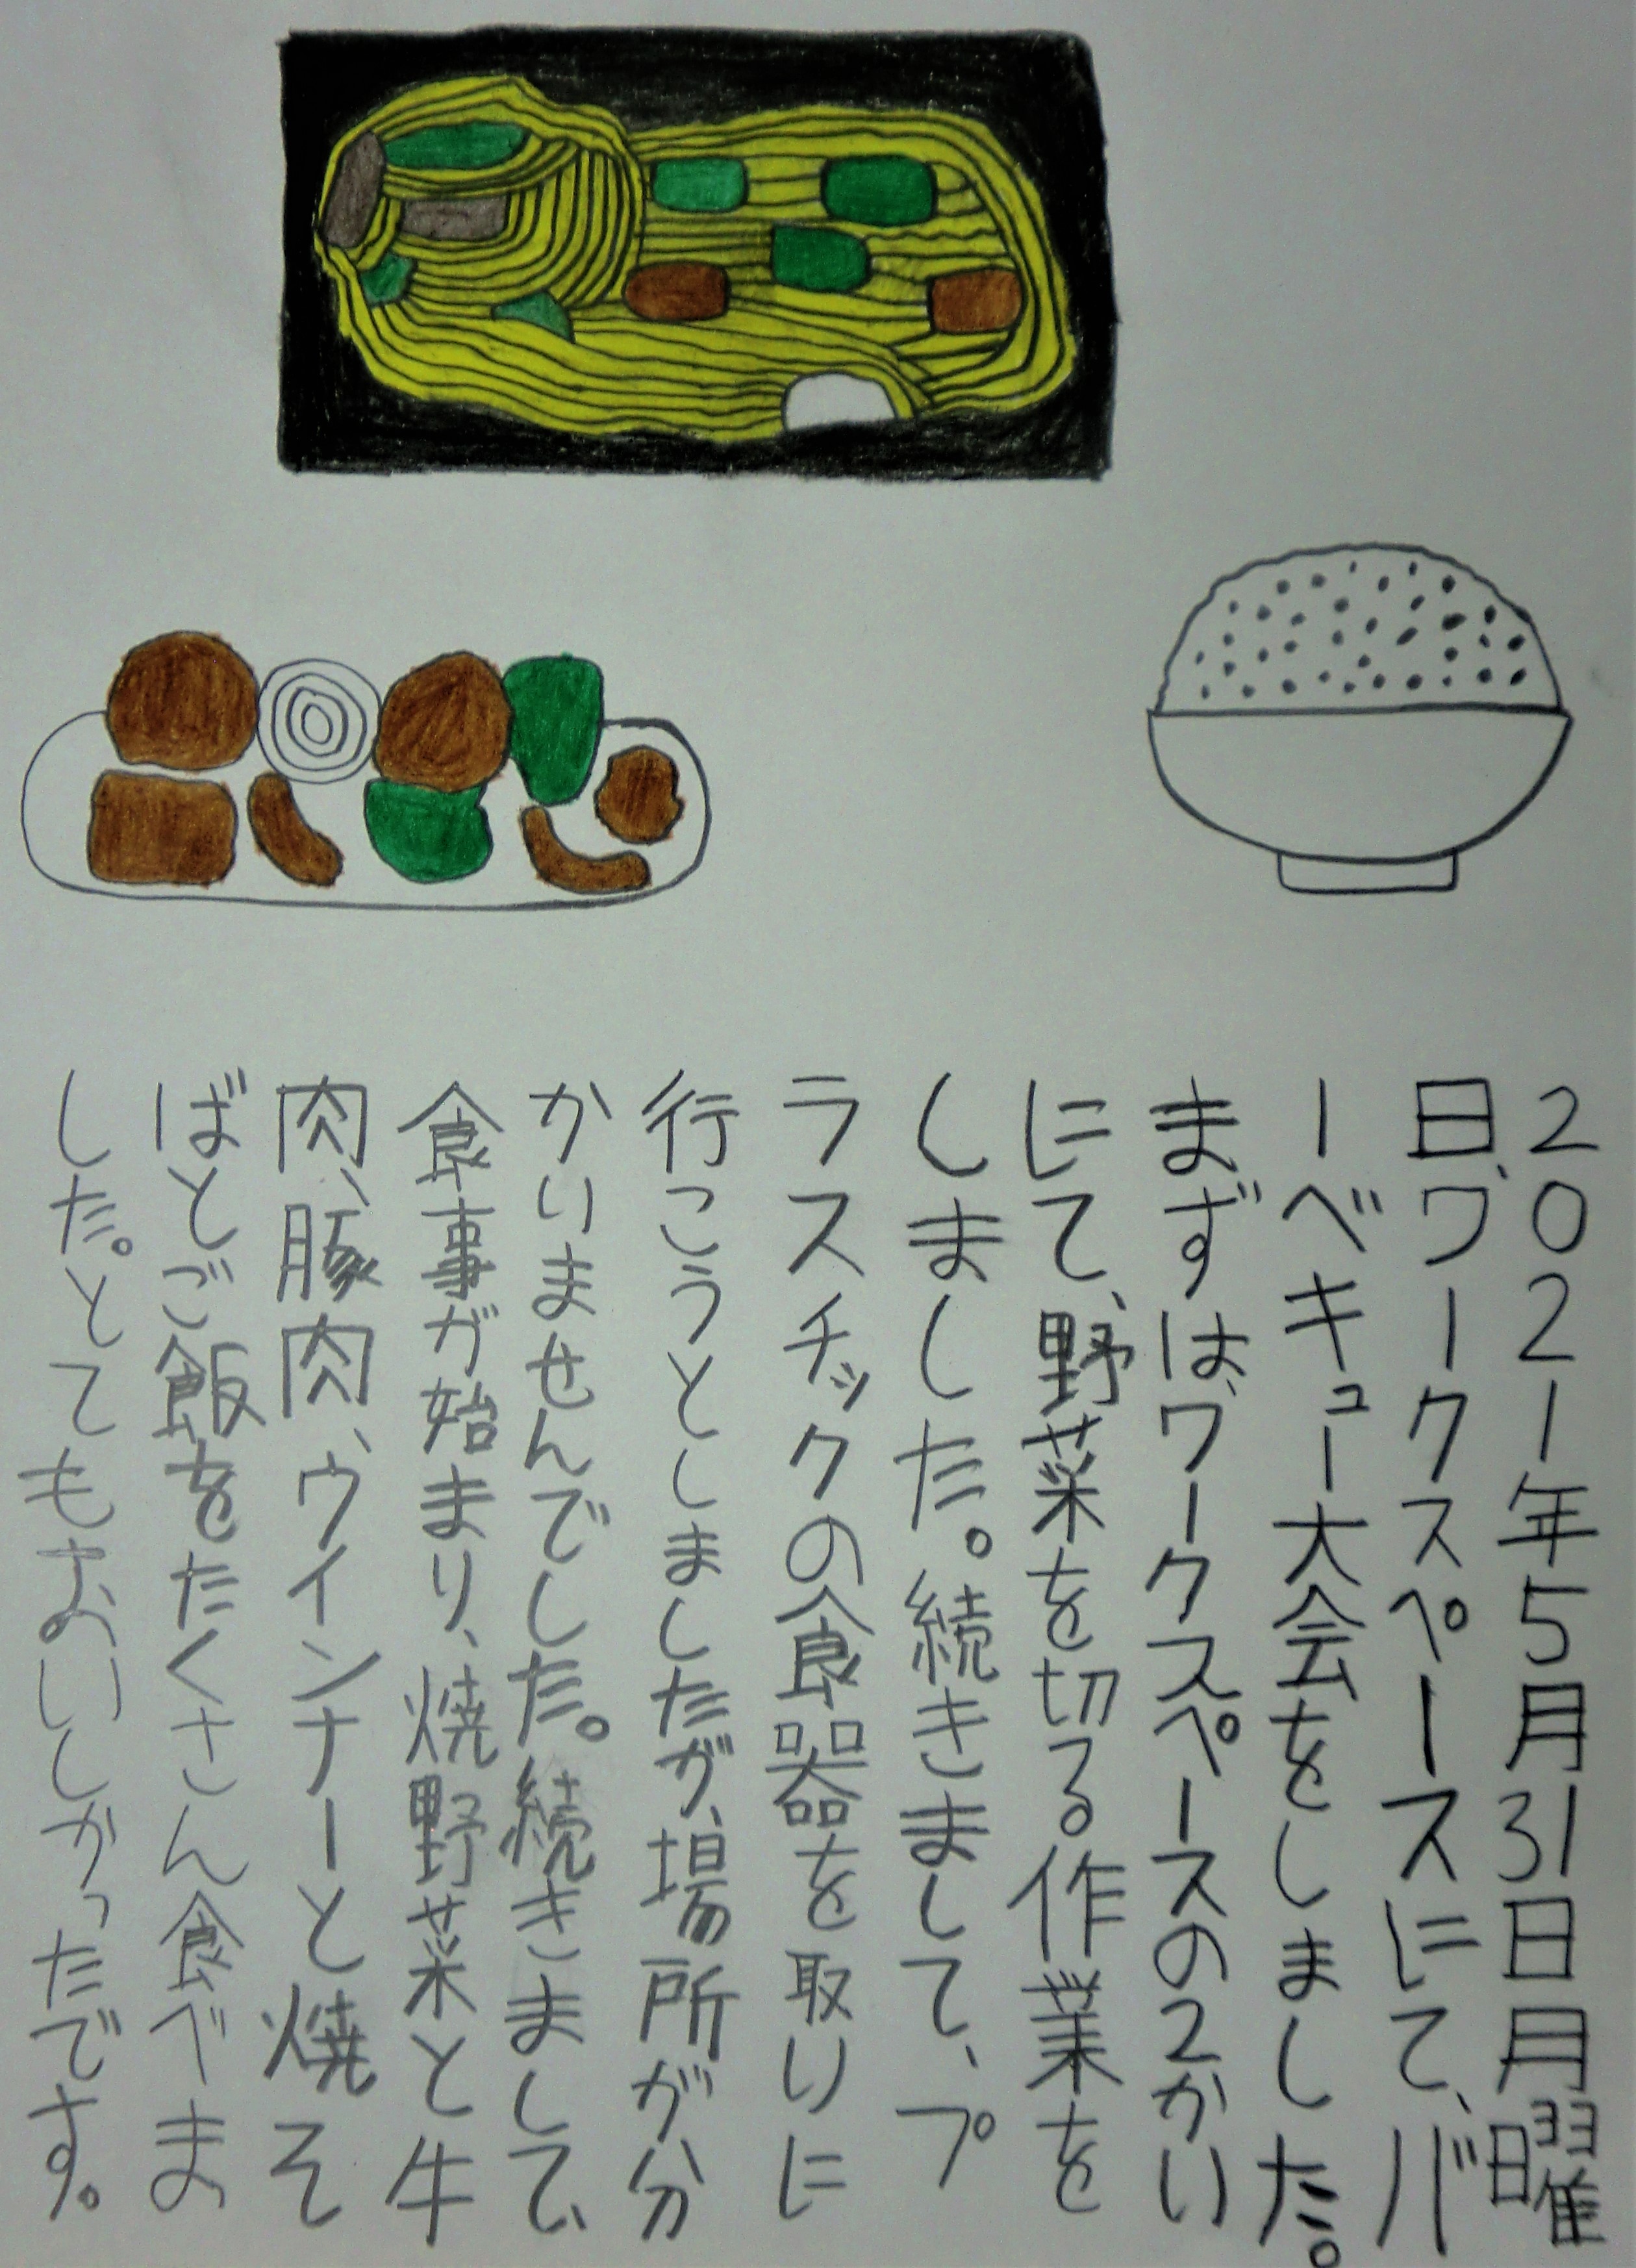 2021年5月31日月曜
日、ワークスペースにて、バ
ーベキュー大会をしました。
まずは、ワークスペースの2かい
にて、野菜を切る作業を
しました。続きまして、プ
ラスチックの食器を取りに
行こうとしましたが、場所が分
かいませんでした。続きまして、
食事が始まり、焼野菜と牛
肉、豚肉、ウインナーと焼そ
ばとご飯をたくさん食べま
した。とてもおいしかったです。